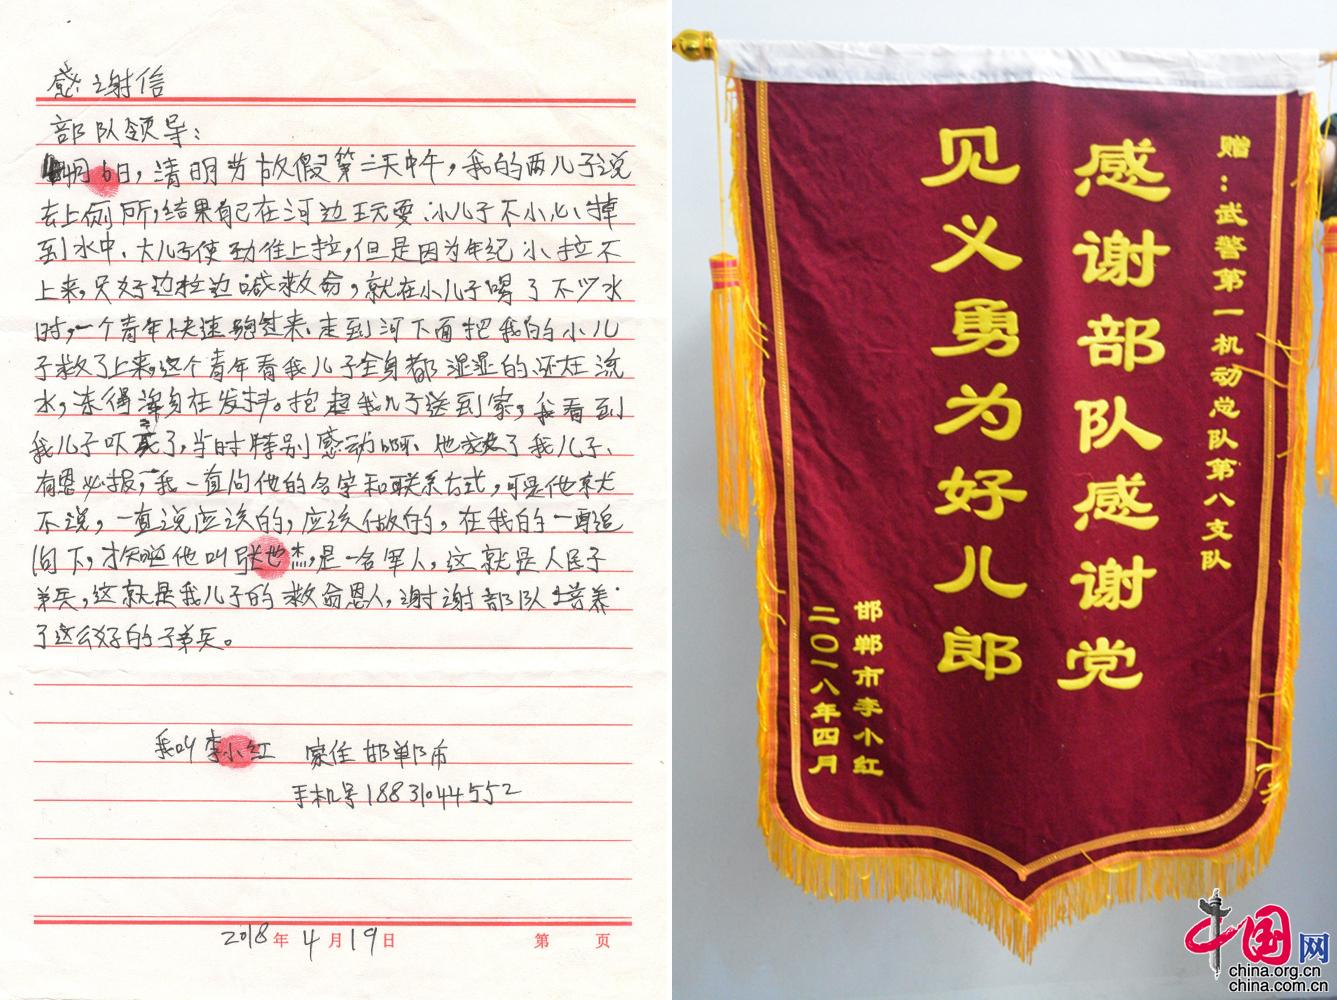 感谢信
部队领导：
4月6日，清明节放假第二天中午，我的两儿子说
去上侧所，结果自己在河边玩耍、小儿子不小心掉
到水中、大儿子使劲往上拉，但是因为年纪小拉不
上来，只好边拉边喊救命，就在小儿子喝了不少水
时，一个青年快速跑过来、走到河下面把我的小儿
子救了上来，这个青年看我儿子全身都湿湿的还在流
水，冻得浑身在发抖。抱起我儿子送到家，我看到
我儿子吓死了，当时特别感动啊、他救了我儿子、
有恩必报，我一直问他的名字和联系方式，可是他就
不说，一直说应该的，应该做的，在我的一再追
问下，才知道他叫张世杰，是一名军人，这就是人民子
弟兵，这就是我儿子的救命恩人，谢谢部队培养
了这么好的子弟兵。
我叫李小红 家住邯郸市
手机号18831044552
2018年4月19日 第 页
赠：武警第一机动总队第八支队
感谢部队感谢党
见义勇为好儿郎
邯郸市李小红
二〇一八年四月
中国网
china.org.cn
china.com.cn